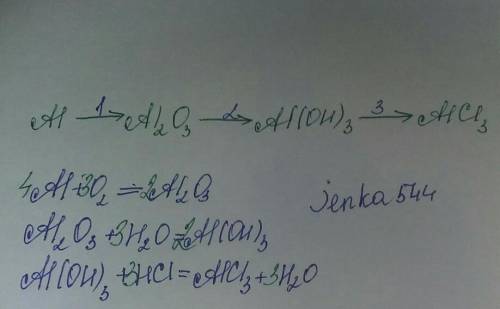 Al 1→ Al₂O₃ 2→ Al(OH)₃ 3→ AlCl₃
4Al+3O₂=2Al₂O₃
jenka544
Al₂O₃+3H₂O=2Al(OH)₃
Al(OH)₃+3HCl=AlCl₃+3H₂O